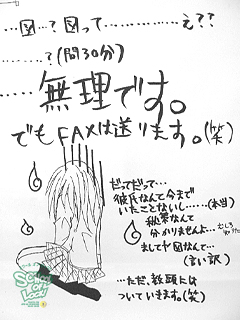 …図…?図って…………え??
……?(間30分)
……無理です。
でもFAXは送ります。(笑)
だってだって…
彼氏なんて今まで
いたことないし……(本当)
秘策なんて
分かりませんよ…
ましてや図なんて…
(言い訳)
…ただ、教頭には
ついていきます。(笑)
SCHOOL
OF
LOCK!